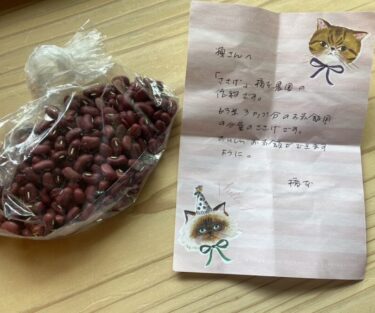 梅さんへ
「ささげ」橋本農園の
収穫です。
もち米3カップ分のお赤飯用
の分量のささげです。
おいしいお赤飯ができます
ように。
橋本